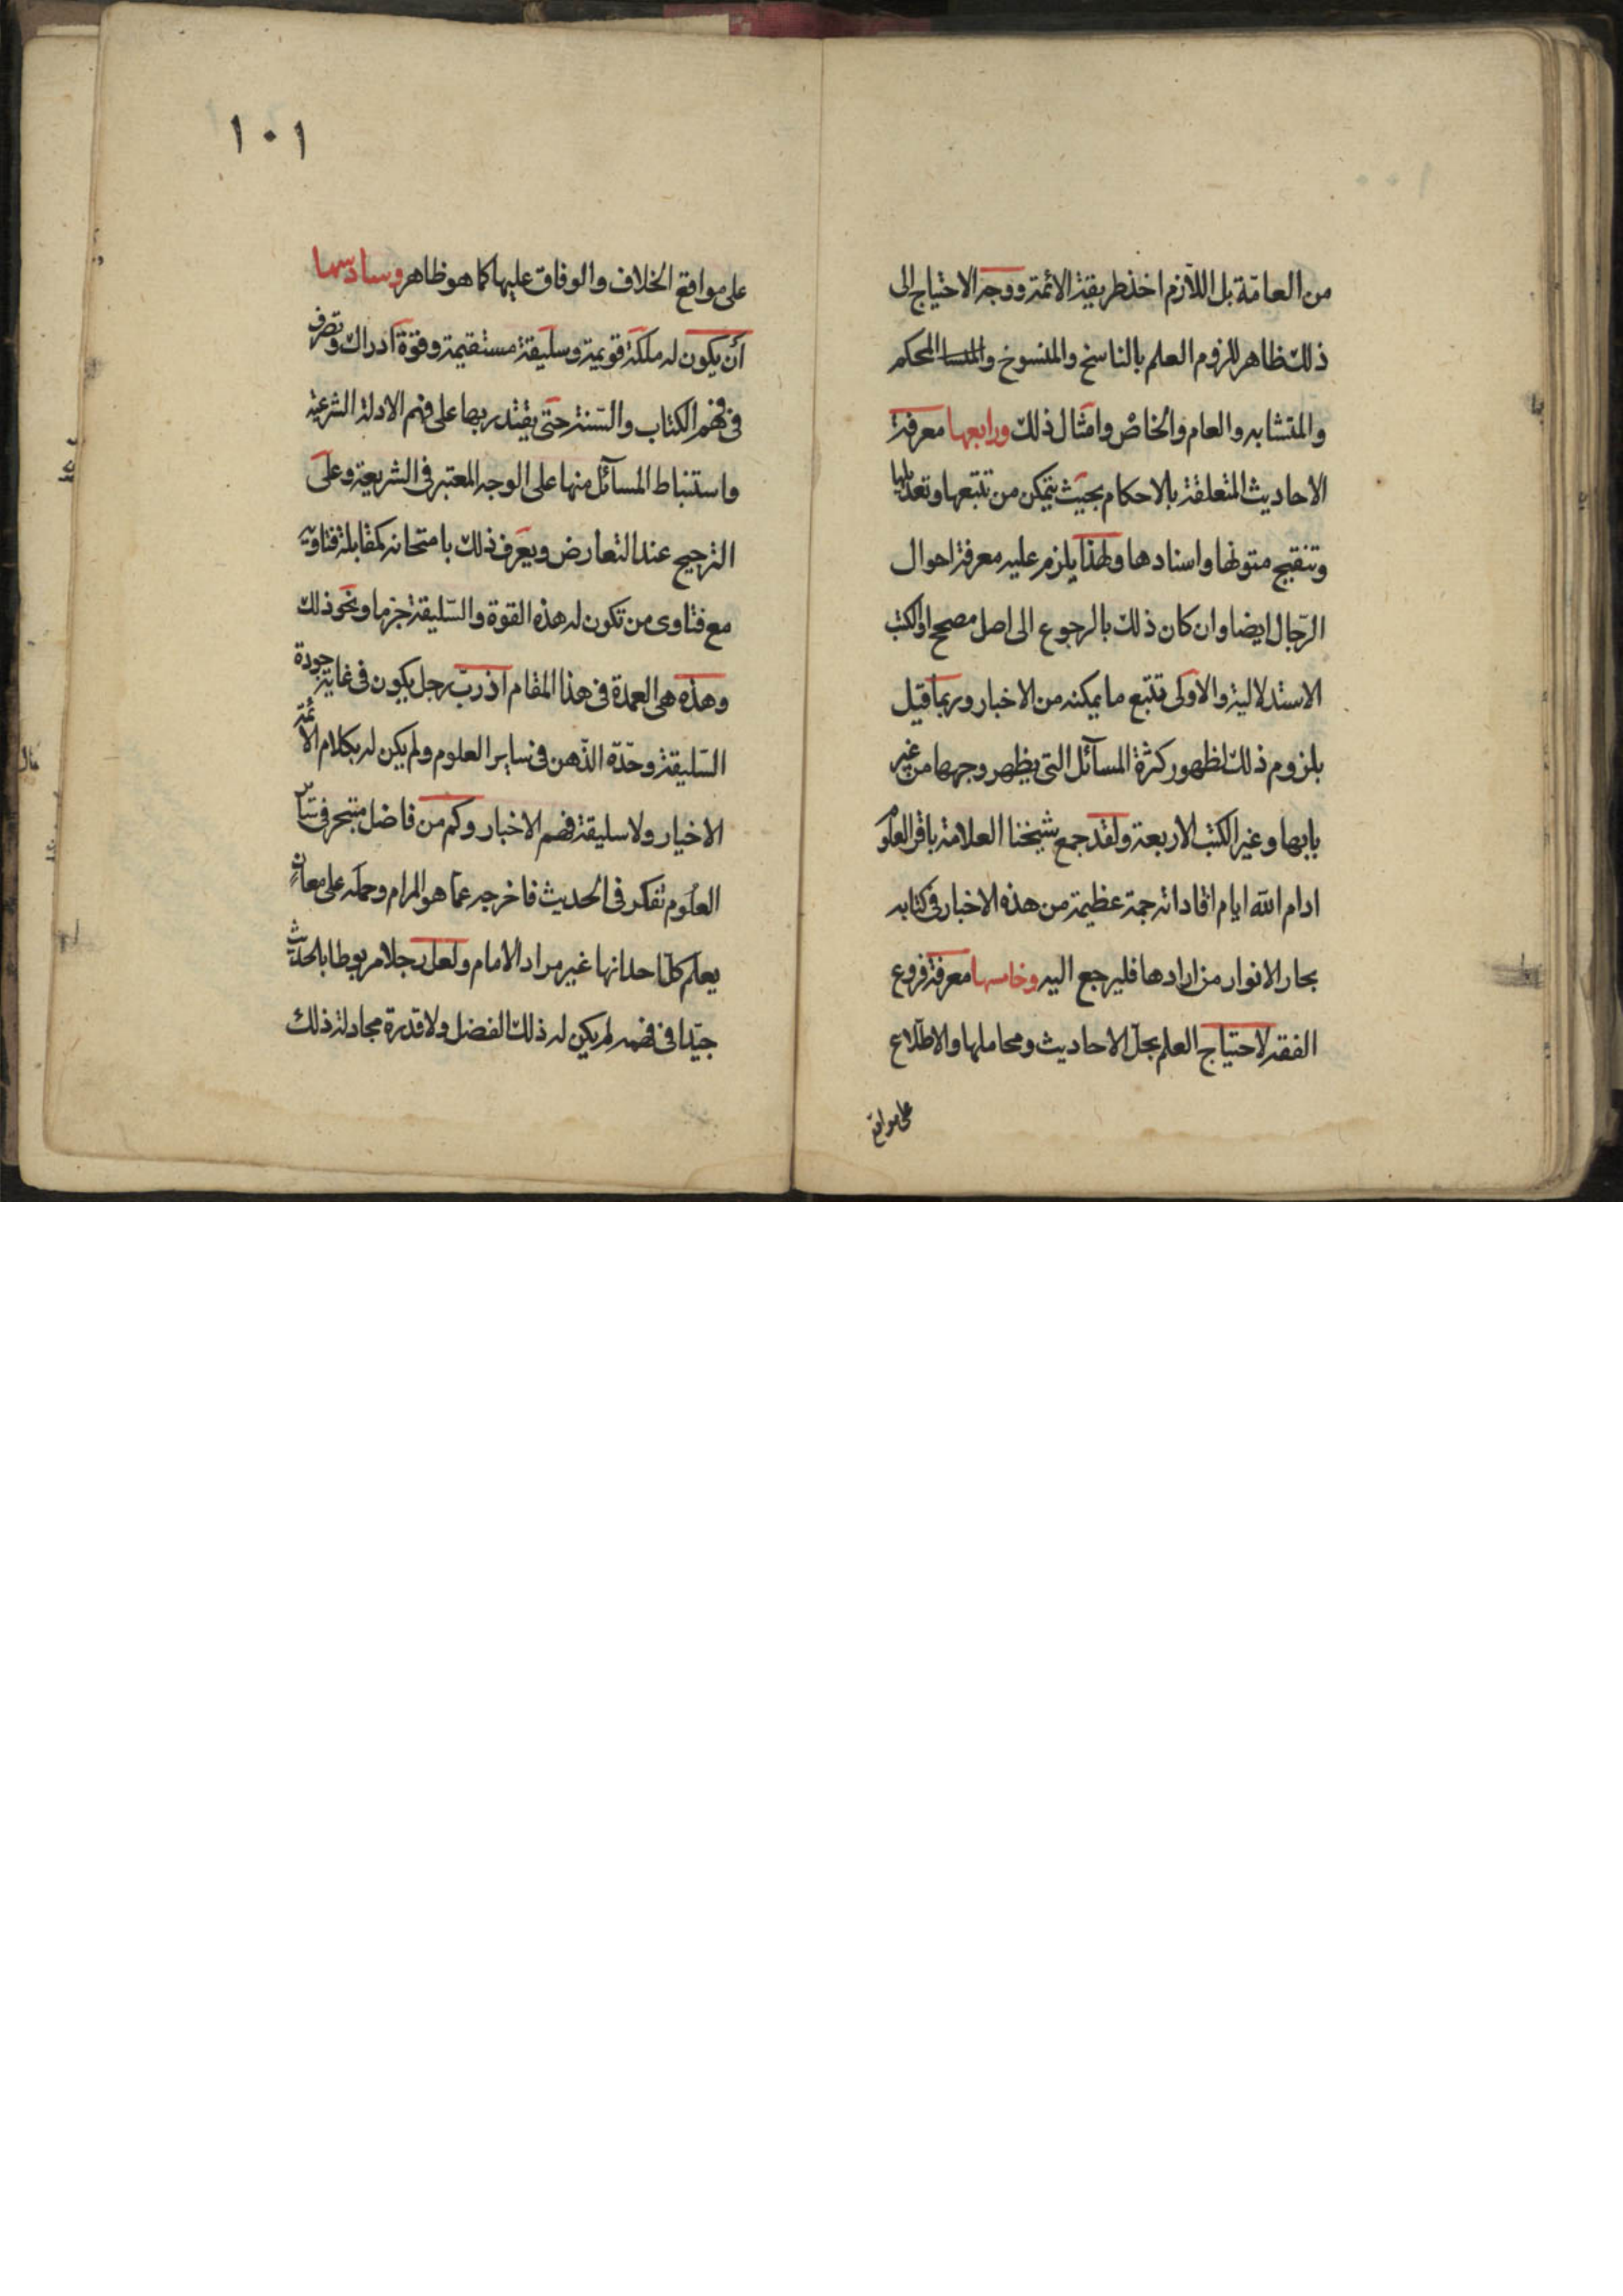 من العامّة بل اللازم اخذ طريقة الائمة ووجه الاحتياج الى
ذلك ظاهر للزوم العلم بالناسخ والمنسوخ والمحكم
والمتشابه والعام والخاصّ وامثال ذلك ورابعها معرفة
الاحاديث المتعلقة بالاحكام بحيث يتمكن من تتبعها وتعديلها
وتنقيح متونها واسنادها ولهذا يلزم عليه معرفة احوال
الرّجال ايضا وان كان ذلك بالرجوع الى اصل مصحح او الكتب
الاستدلالية والاولى تتبع ما يمكنه من الاخبار وربما قيل
بلزوم ذلك لظهور كثرة المسآئل التى يظهر وجهها من غير
بابها وغير الكتب الاربعة ولقد جمع شيخنا العلامة باقر العلوم
ادام الله ايام افاداته جمة عظيمة من هذه الاخبار فى كتابه
بحار الانوار من ارادها فليرجع اليه وخامسها معرفة فروع
الفقه لاحتياج العلم بجلّ الاحاديث ومحاملها والاطّلاع
على مواقع
١٠١
على مواقع الخلاف والوفاق عليها كما هو ظاهر وسادسها
أن يكون له ملكة قويمة وسليقة مستقيمة وقوّة ادراك وتصرف
فى فهم الكتاب والسّنة حتى يقتدر بها على فهم الادلة الشرعية
واستنباط المسآئل منها على الوجه المعتبر فى الشريعة وعلى
الترجيح عند التعارض ويعرف ذلك بامتحانه كمقابلة فتاويه
مع فتاوى من تكون له هذه القوة والسّليقة جزما ونحو ذلك
وهذه هى العمدة فى هذا المقام اذ ربّ رجل يكون فى غاية جودة
السّليقة وحدّة الذّهن فى ساير العلوم ولم يكن له بكلام الائمّة
الاخيار ولا سليقة فهم الاخبار وكم من فاضل متبحر فى سائر
العلوم تفكر فى الحديث فاخرجه عمّا هو المرام وحمله على معانٍ
يعلم كلّ احد انها غير مراد الامام ولعل رجلا مربوطا بالحديث
جيّدا فى فهمه لم يكن له ذلك الفضل ولا قدرة مجادلة ذلك